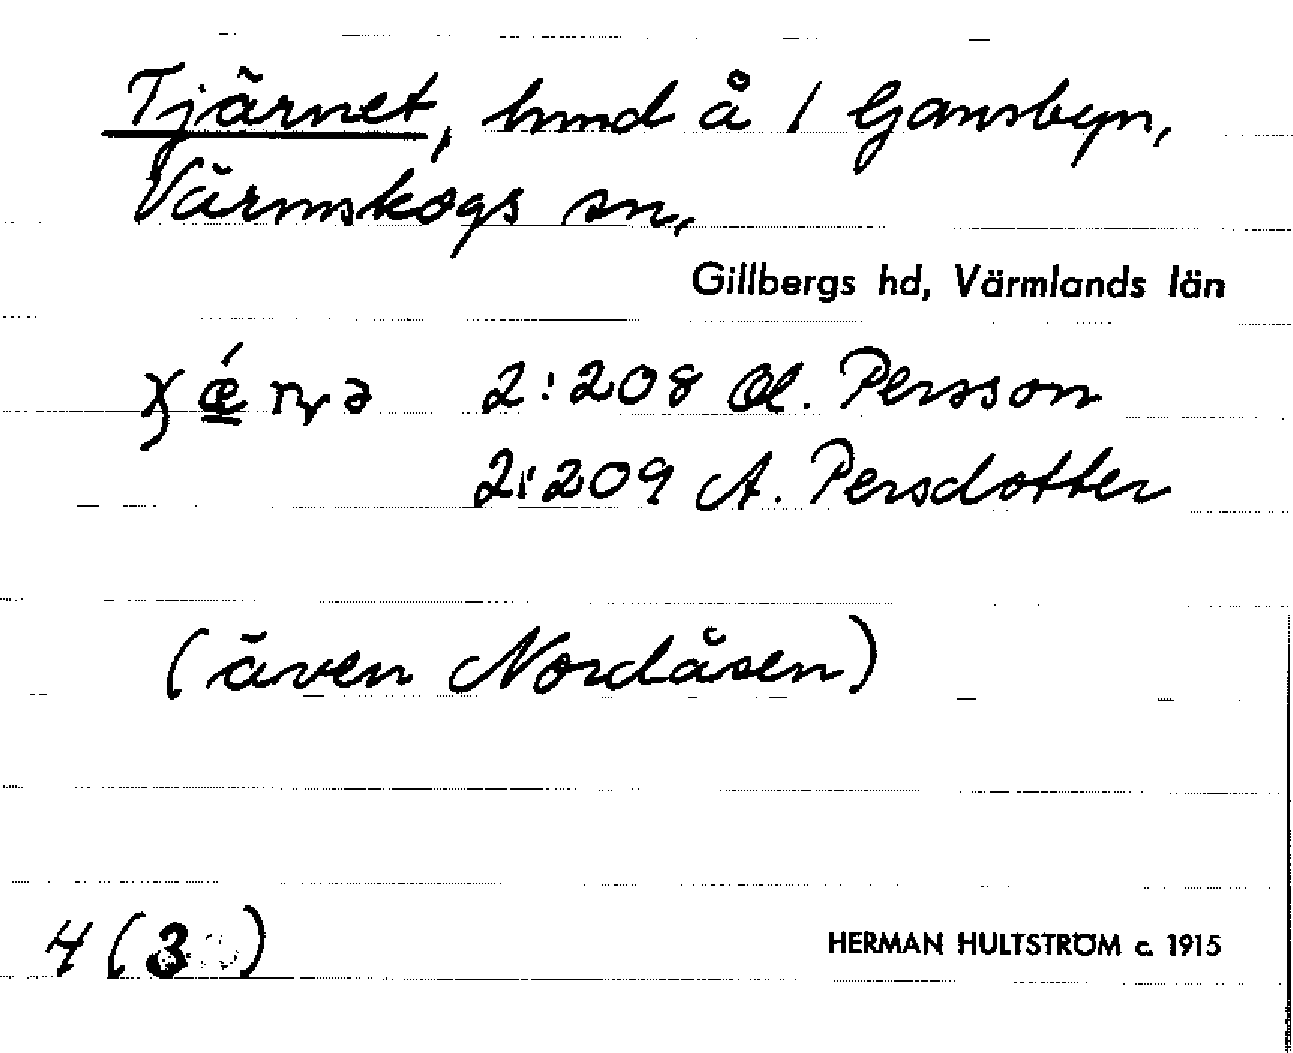 Tjärnet, hmd å 1 Gansbyn,
Värmskogs sn,
Gillbergs hd, Värmlands län
2:208 Ol. Persson
2:209 A. Persdotter
(även Nordåsen)
4 (3)
HERMAN HULTSTRÖM c. 1915